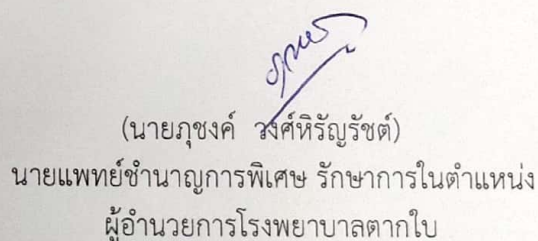 (นายภุชงค์ วงศ์หิรัญรัชต์)
นายแพทย์ชำนาญการพิเศษ รักษาการในตำแหน่ง
ผู้อำนวยการโรงพยาบาลตากใบ